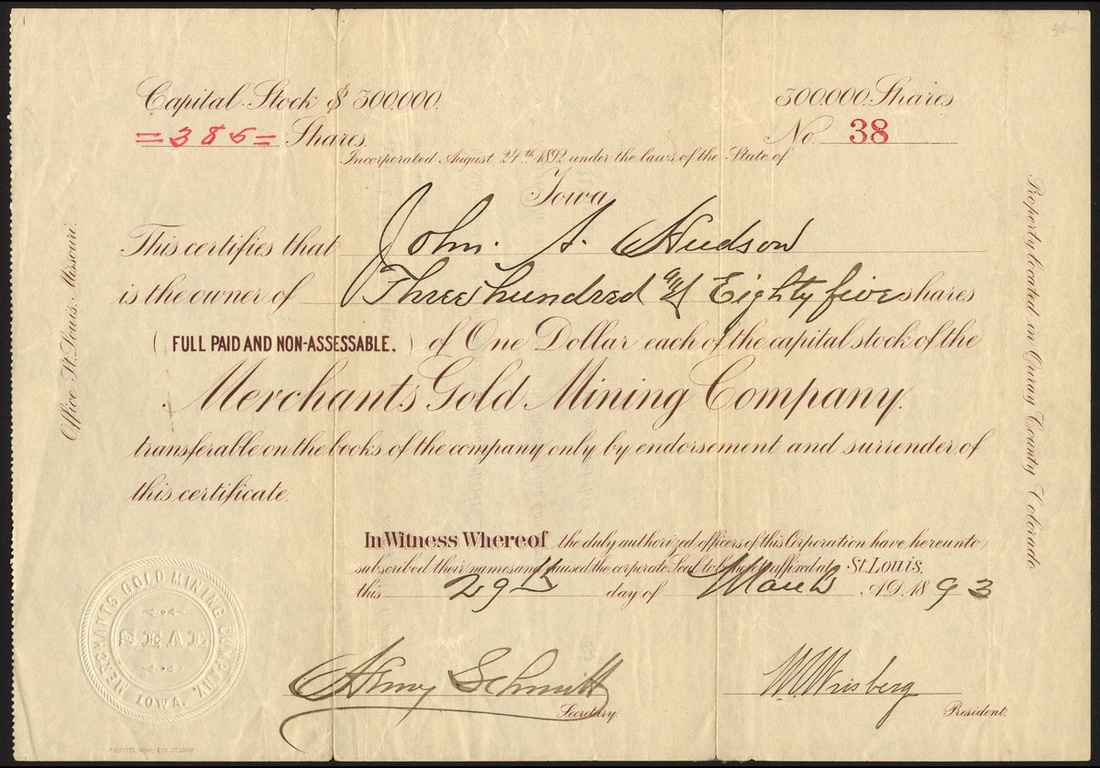 Capital Stock $ 300.000.
300.000. Shares
=385= Shares.
No. 38
Incorporated August 24th 1892 under the laws of the State of
Iowa
This certifies that John. A. Hudson
is the owner of Three hundred and Eighty five shares
( FULL PAID AND NON-ASSESSABLE. ) of One Dollar each of the capital stock of the
Merchants Gold Mining Company.
transferable on the books of the company only by endorsement and surrender of
this certificate.
In Witness Whereof the duly authorized officers of this Corporation have hereunto
subscribed their names and caused the corporate Seal to be hereto affixed at St. Louis,
this 29th day of March A.D. 1893
Henry Schmitt
Secretary.
W. Wrisberg
President.
Office St. Louis, Missouri.
Property located in Ouray County Colorado.
MERCHANTS GOLD MINING COMPANY.
SEAL
IOWA.